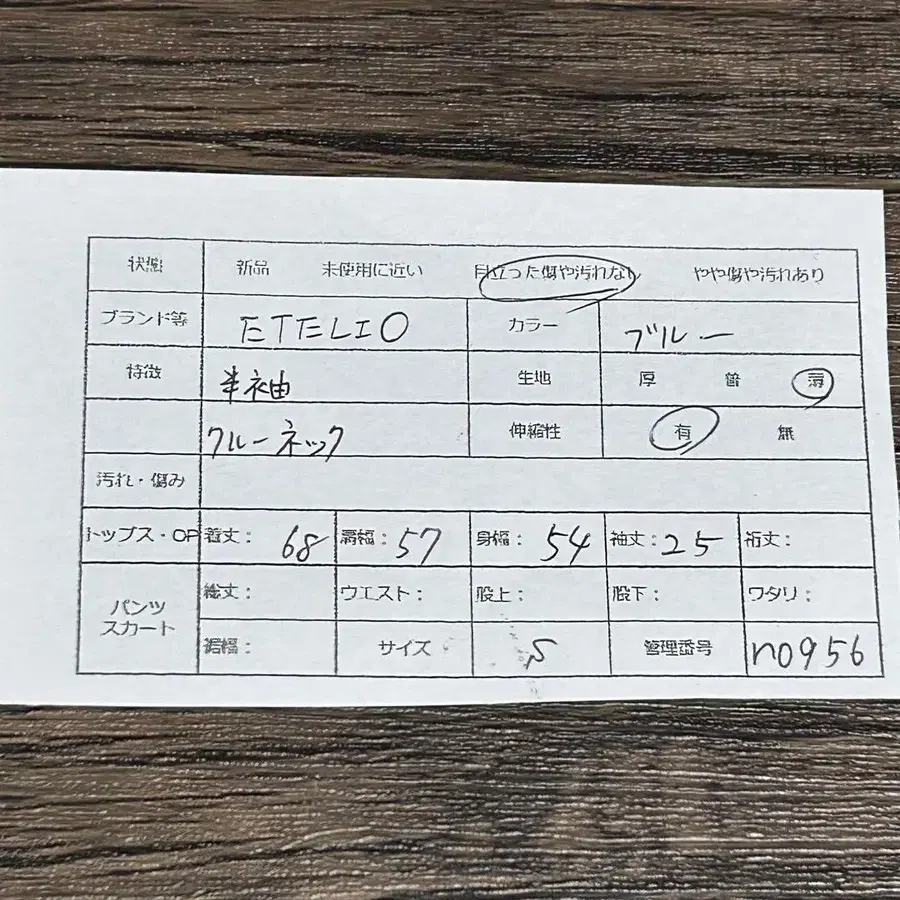 状態 新品 未使用に近い 目立った傷や汚れなし やや傷や汚れあり
ブランド等 ETELIO カラー ブルー
特徴 半袖 生地 厚 普 薄
クルーネック 伸縮性 有 無
汚れ・傷み
トップス・OP 着丈: 68 肩幅: 57 身幅: 54 袖丈: 25 裄丈:
パンツ スカート 総丈: ウエスト: 股上: 股下: ワタリ:
裾幅: サイズ S 管理番号 n0956